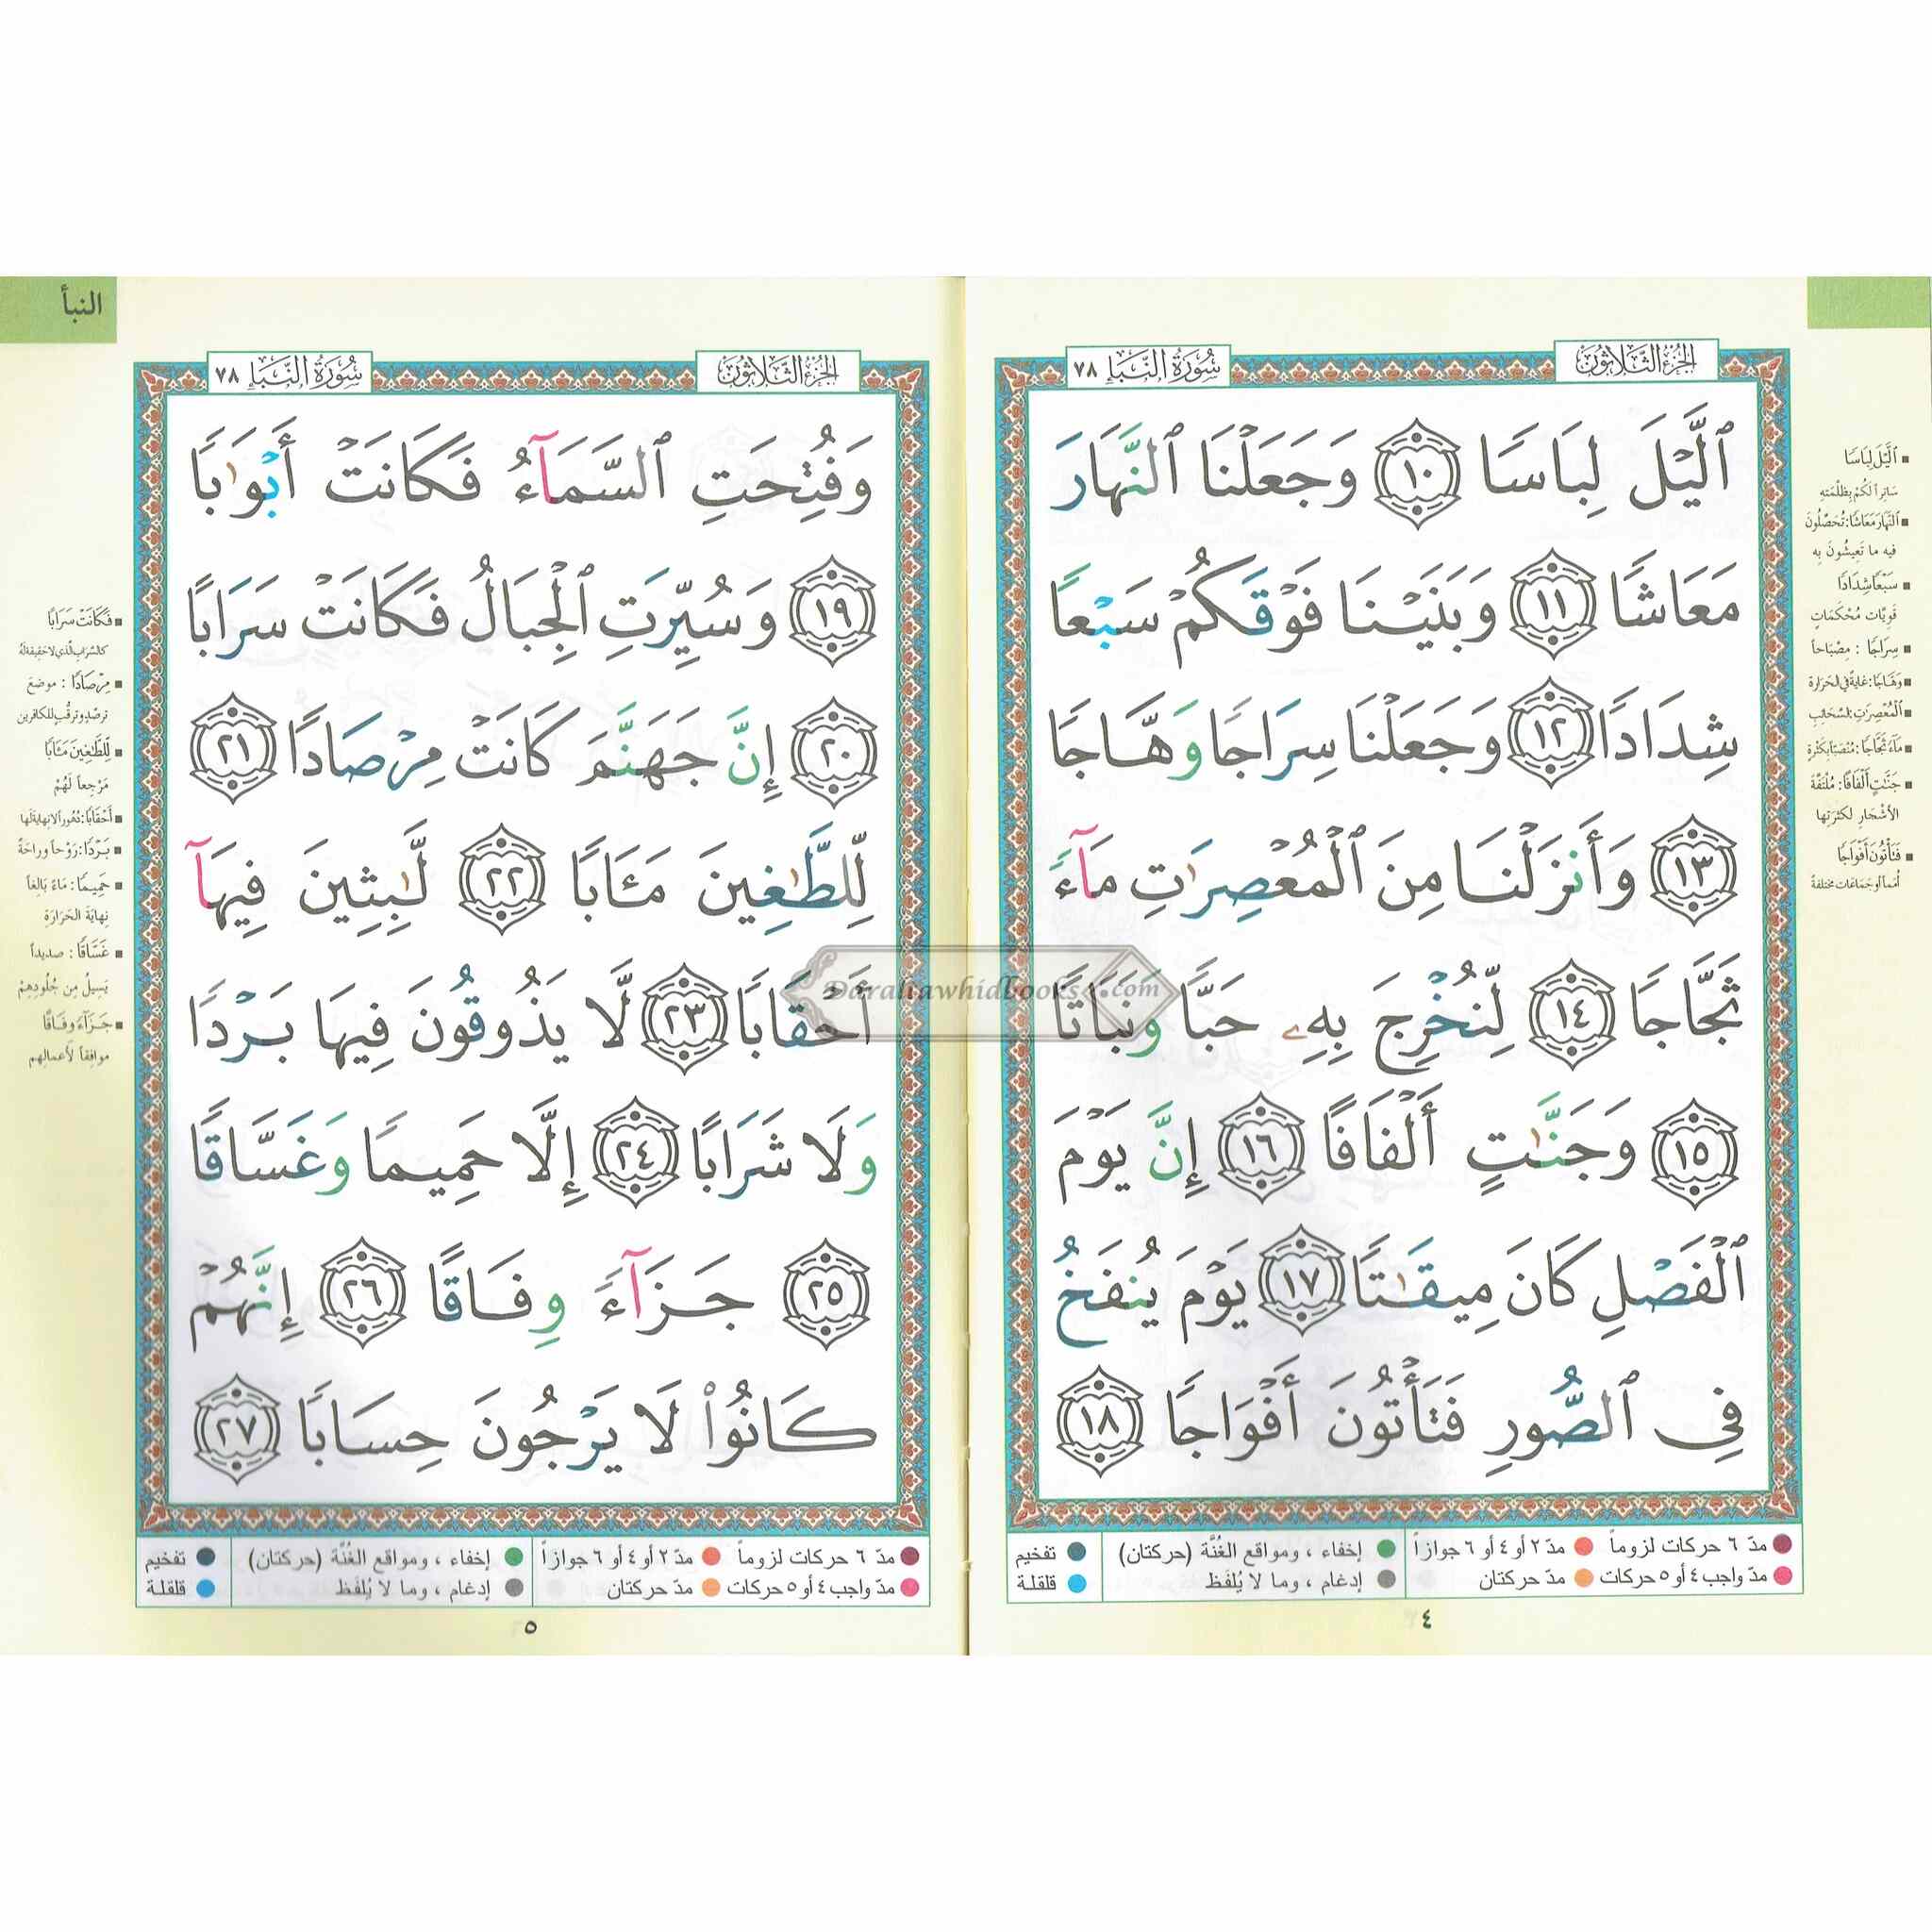 الجزء الثلاثون
سورة النبإ ٧٨
ٱلَّيْلَ لِبَاسًا ١٠ وَجَعَلْنَا ٱلنَّهَارَ
مَعَاشًا ١١ وَبَنَيْنَا فَوْقَكُمْ سَبْعًا
شِدَادًا ١٢ وَجَعَلْنَا سِرَاجًا وَهَّاجًا
١٣ وَأَنزَلْنَا مِنَ ٱلْمُعْصِرَٰتِ مَآءً
ثَجَّاجًا ١٤ لِّنُخْرِجَ بِهِۦ حَبًّا وَنَبَاتًا
١٥ وَجَنَّٰتٍ أَلْفَافًا ١٦ إِنَّ يَوْمَ
ٱلْفَصْلِ كَانَ مِيقَٰتًا ١٧ يَوْمَ يُنفَخُ
فِى ٱلصُّورِ فَتَأْتُونَ أَفْوَاجًا ١٨
■ ٱلَّيْلَ لِبَاسًا
ساتِراً لَكُمْ بِظُلْمَتِهِ
■ ٱلنَّهَارَ مَعَاشًا: تُحَصِّلُونَ
فيه ما تَعِيشُونَ بِهِ
■ سَبْعًا شِدَادًا
قَوِيَّات مُحْكَمَاتٍ
■ سِرَاجًا : مِصْبَاحاً
■ وَهَّاجًا: غايةً في الحَرَارة
■ ٱلْمُعْصِرَٰتِ: السَّحَائِبِ
■ مَآءً ثَجَّاجًا: مُنْصَبّاً بِكَثْرةٍ
■ جَنَّٰتٍ أَلْفَافًا: مُلْتَفَّةَ
الأشْجَارِ لكثرَتِها
■ فَتَأْتُونَ أَفْوَاجًا
أُمَماً أو جَمَاعَات مختلفةً
مدّ ٦ حركات لزوماً مدّ ٢ أو ٤ أو ٦ جوازاً إخفاء ، ومواقع الغُنَّة (حركتان) تفخيم
مدّ واجب ٤ أو ٥ حركات مدّ حركتان إدغام ، وما لا يُلفَظ قلقلة
٤
النبأ
الجزء الثلاثون
سورة النبإ ٧٨
وَفُتِحَتِ ٱلسَّمَآءُ فَكَانَتْ أَبْوَٰبًا
١٩ وَسُيِّرَتِ ٱلْجِبَالُ فَكَانَتْ سَرَابًا
٢٠ إِنَّ جَهَنَّمَ كَانَتْ مِرْصَادًا ٢١
لِّلطَّٰغِينَ مَـَٔابًا ٢٢ لَّٰبِثِينَ فِيهَآ
أَحْقَابًا ٢٣ لَّا يَذُوقُونَ فِيهَا بَرْدًا
وَلَا شَرَابًا ٢٤ إِلَّا حَمِيمًا وَغَسَّاقًا
٢٥ جَزَآءً وِفَاقًا ٢٦ إِنَّهُمْ
كَانُوا۟ لَا يَرْجُونَ حِسَابًا ٢٧
■ فَكَانَتْ سَرَابًا
كالسَّرَابِ الَّذي لا حقيقة لَهُ
■ مِرْصَادًا : موضعَ
ترصُّدٍ وترقُّبٍ للكافرين
■ لِّلطَّٰغِينَ مَـَٔابًا
مَرْجِعاً لَهُمْ
■ أَحْقَابًا: دُهُوراً لا نهاية لها
■ بَرْدًا: رَوْحاً وراحَةً
■ حَمِيمًا: ماءً بَالِغاً
نِهايَةَ الحَرَارَةِ
■ غَسَّاقًا : صديداً
يَسِيلُ مِن جُلُودِهِمْ
■ جَزَآءً وِفَاقًا
موافِقاً لأعمالِهِم
مدّ ٦ حركات لزوماً مدّ ٢ أو ٤ أو ٦ جوازاً إخفاء ، ومواقع الغُنَّة (حركتان) تفخيم
مدّ واجب ٤ أو ٥ حركات مدّ حركتان إدغام ، وما لا يُلفَظ قلقلة
٥
Daraltawhidbooks.com